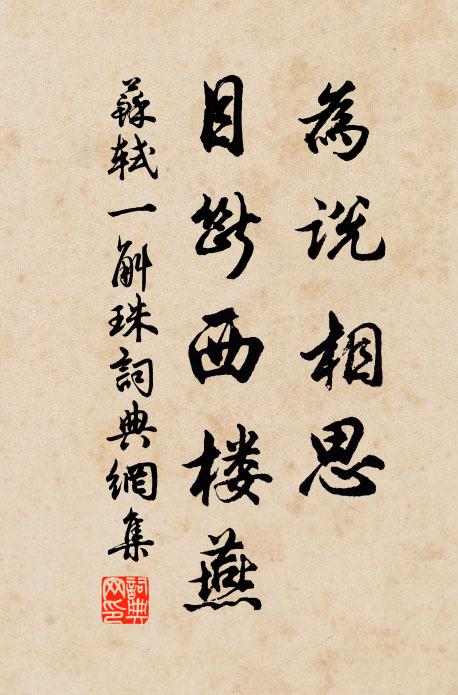 為說相思
目斷西楼燕
蘇軾一斛珠詞典網集
詞典
网印